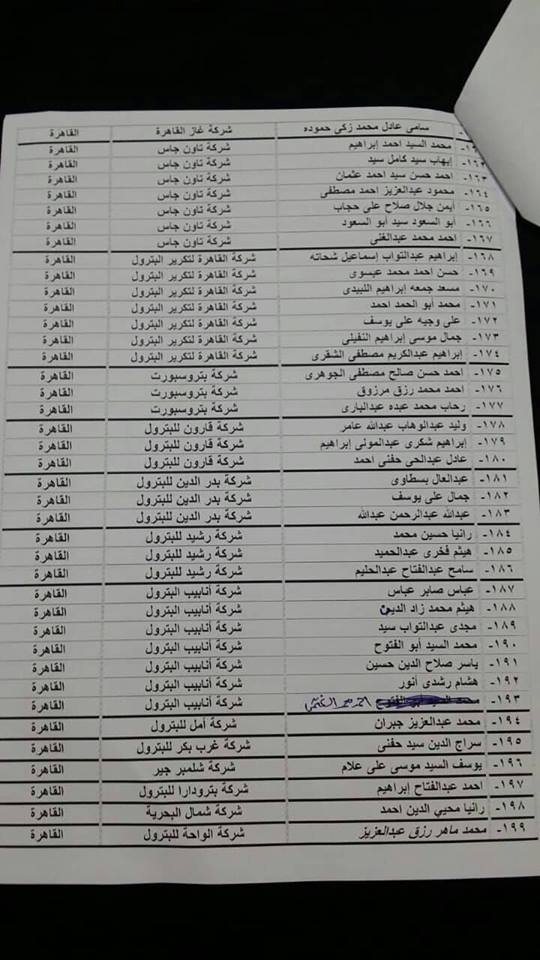 سامى عادل محمد زكى حموده شركة غاز القاهرة القاهرة
محمد السيد احمد إبراهيم شركة تاون جاس القاهرة
إيهاب سيد كامل سيد شركة تاون جاس القاهرة
١٦٣- احمد حسن سيد احمد عثمان شركة تاون جاس القاهرة
١٦٤- محمود عبدالعزيز احمد مصطفى شركة تاون جاس القاهرة
١٦٥- أيمن جلال صلاح على حجاب شركة تاون جاس القاهرة
١٦٦- أبو السعود سيد أبو السعود شركة تاون جاس القاهرة
١٦٧- احمد محمد عبدالغنى شركة تاون جاس القاهرة
١٦٨- إبراهيم عبدالتواب إسماعيل شحاته شركة القاهرة لتكرير البترول القاهرة
١٦٩- حسن احمد محمد عيسوى شركة القاهرة لتكرير البترول القاهرة
١٧٠- مسعد جمعه إبراهيم اللبيدى شركة القاهرة لتكرير البترول القاهرة
١٧١- محمد أبو الحمد احمد شركة القاهرة لتكرير البترول القاهرة
١٧٢- على وجيه على يوسف شركة القاهرة لتكرير البترول القاهرة
١٧٣- جمال موسى إبراهيم التفيلى شركة القاهرة لتكرير البترول القاهرة
١٧٤- إبراهيم عبدالكريم مصطفى الشقرى شركة القاهرة لتكرير البترول القاهرة
١٧٥- احمد حسن صالح مصطفى الجوهرى شركة بتروسبورت القاهرة
١٧٦- احمد محمد رزق مرزوق شركة بتروسبورت القاهرة
١٧٧- رحاب محمد عبده عبدالبارى شركة بتروسبورت القاهرة
١٧٨- وليد عبدالوهاب عبدالله عامر شركة قارون للبترول القاهرة
١٧٩- إبراهيم شكرى عبدالمولى إبراهيم شركة قارون للبترول القاهرة
١٨٠- عادل عبدالحى حفنى احمد شركة قارون للبترول القاهرة
١٨١- عبدالعال بسطاوى شركة بدر الدين للبترول القاهرة
١٨٢- جمال على يوسف شركة بدر الدين للبترول القاهرة
١٨٣- عبدالله عبدالرحمن عبدالله شركة بدر الدين للبترول القاهرة
١٨٤- رانيا حسين محمد شركة رشيد للبترول القاهرة
١٨٥- هيثم فخرى عبدالحميد شركة رشيد للبترول القاهرة
١٨٦- سامح عبدالفتاح عبدالحليم شركة رشيد للبترول القاهرة
١٨٧- عباس صابر عباس شركة أنابيب البترول القاهرة
١٨٨- هيثم محمد زاد الدين شركة أنابيب البترول القاهرة
١٨٩- مجدى عبدالتواب سيد شركة أنابيب البترول القاهرة
١٩٠- محمد السيد أبو الفتوح شركة أنابيب البترول القاهرة
١٩١- ياسر صلاح الدين حسين شركة أنابيب البترول القاهرة
١٩٢- هشام رشدى أنور شركة أنابيب البترول القاهرة
١٩٣- شركة أنابيب البترول القاهرة
١٩٤- محمد عبدالعزيز جبران شركة أمل للبترول القاهرة
١٩٥- سراج الدين سيد حفنى شركة غرب بكر للبترول القاهرة
١٩٦- يوسف السيد موسى على علام شركة شلمبر جير القاهرة
١٩٧- احمد عبدالفتاح إبراهيم شركة بترودارا للبترول القاهرة
١٩٨- رانيا محيي الدين احمد شركة شمال البحرية القاهرة
١٩٩- محمد ماهر رزق عبدالعزيز شركة الواحة للبترول القاهرة